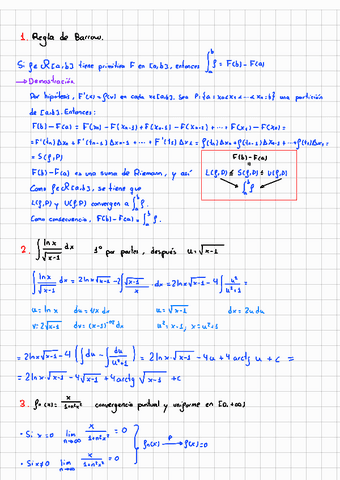 1. Regla de Barrow.
Si f∈R[a,b] tiene primitiva F en [a,b], entonces ∫_a^b f = F(b) - F(a)
→ Demostración
Por hipótesis, F'(x) = f(x) en cada x∈[a,b]. Sea P={a=x₀<x₁<...<xₙ=b} una partición
de [a,b].
F(b) - F(a) = F(xₙ) - F(xₙ₋₁) + F(xₙ₋₁) - F(xₙ₋₂) + ... + F(x₁) - F(x₀) =
= F'(tₙ)Δxₙ + F'(tₙ₋₁)Δxₙ₋₁ + ... + F'(t₁)Δx₁ = f(tₙ)Δxₙ + f(tₙ₋₁)Δxₙ₋₁ + ... + f(t₁)Δx₁ =
= S(f,P)
F(b) - F(a) es una suma de Riemann, y así
Como f∈R[a,b], se tiene que
L(f,P) y U(f,P) convergen a ∫_a^b f.
Como consecuencia, F(b) - F(a) = ∫_a^b f.
F(b) - F(a)
=
L(f,P) ≤ S(f,P) ≤ U(f,P)
∫_a^b f
2. ∫ ln x/√(x-1) dx 1º por partes, después u=√(x-1)
∫ ln x/√(x-1) dx = 2ln x √(x-1) - 2∫ √(x-1)/x · dx = 2ln x √(x-1) - 4∫ u²/(u²+1) =
u = ln x du = 1/x dx u = √(x-1) dx = 2u du
v = 2√(x-1) dv = (x-1)^(-1/2) dx u² = x-1; x = u²+1
= 2ln x √(x-1) - 4(∫du - ∫ du/(u²+1)) = 2ln x √(x-1) - 4u + 4arctg u + c =
= 2ln x √(x-1) - 4√(x-1) + 4arctg √(x-1) + c
3. fₙ(x) = x/(1+n²x²) convergencia puntual y uniforme en [0,+∞)
• Si x=0 lim n→∞ x/(1+n²x²) = 0
fₙ(x) →^P f(x)=0
• Si x≠0 lim n→∞ x/(1+n²x²) = 0